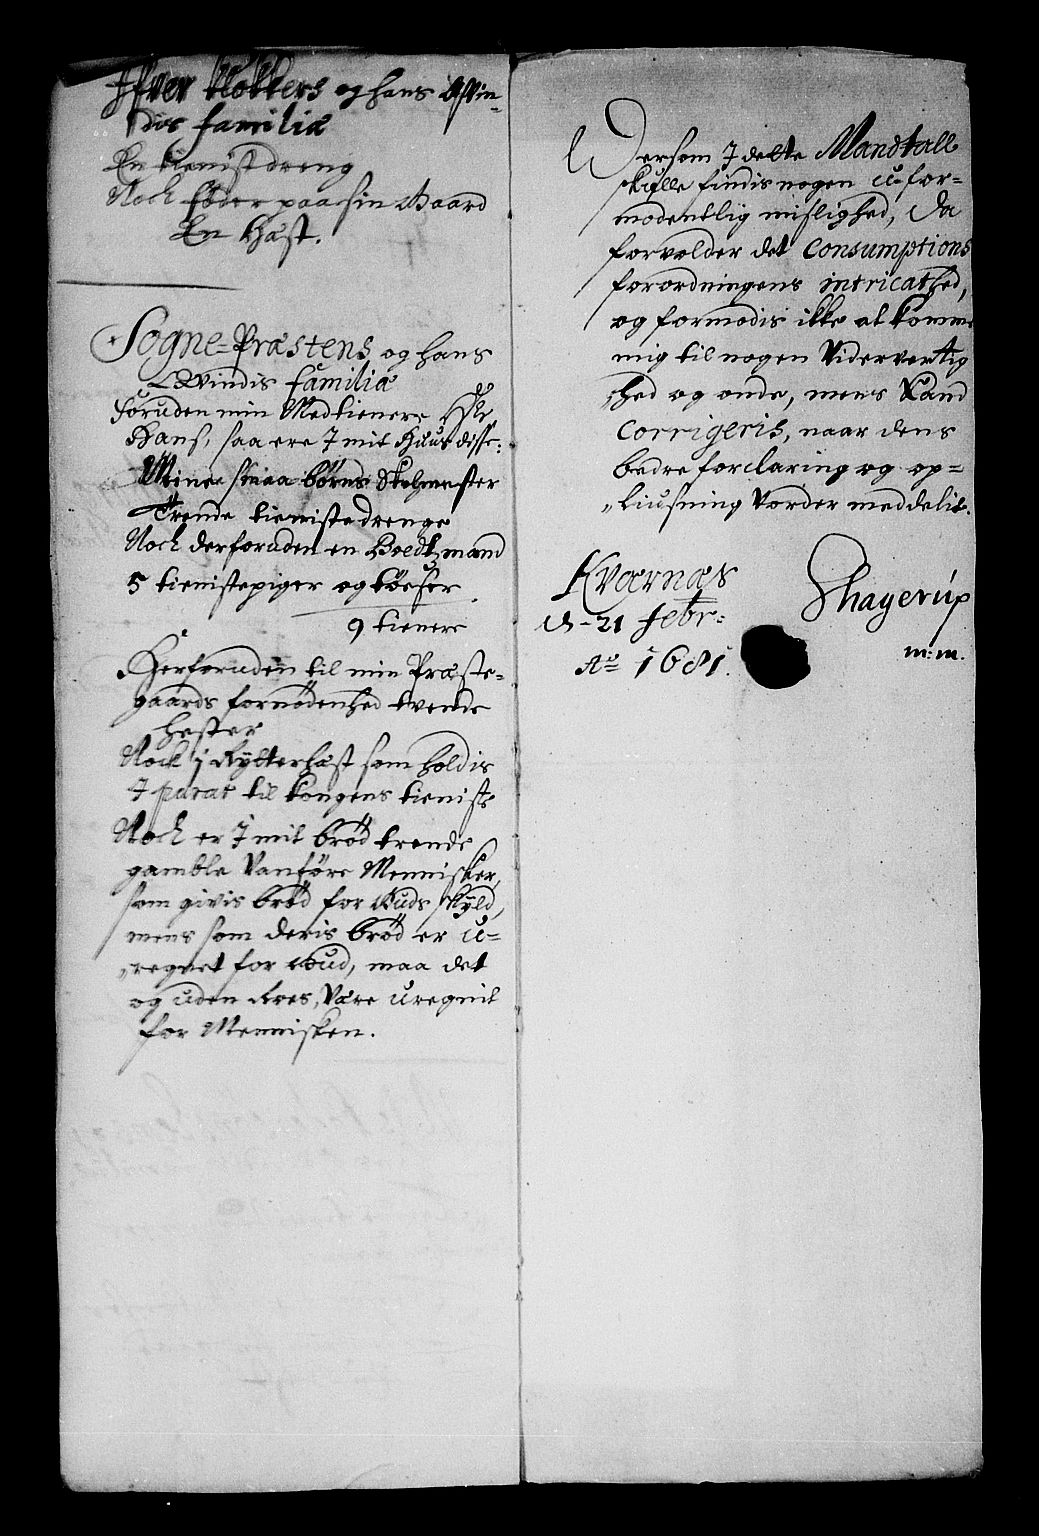 Ifver Klokkers og hans Qvin-
dis familiæ
En tienistdreng
Noch föder paa sin Gaard
En Hæst.
Sogne-Præstens og hans
Qvindis familiæ
foruden min Medtienere Hr
Hans, saa ere J mit Huus disse:
Mine smaa börns Skolemester
Trende tienistedrenge
Noch derforuden en Boedtzmand
5 tienistepiger og töeser
9 tienere
Herforuden til min Præste-
gaards fornödenhed tvende
hester
Noch j Rytterhæst som holdis
J parat til kongens tienist
Noch er J mit bröd trende
gamble Vanföre Mennisker,
som givis bröd for Guds skyld,
mens som deris bröd er u-
regnet for Gud, maa det
og uden Roes, Være uregnit
for Mennisken.
Dersom J dette Mandtall
skulle findis nogen u-for-
modentlig mislighed, Da
forvolder det Consumptions
forordningens intricathed,
og formodis ikke at komme
mig til nogen Vidervertig
hed og onde, mens Kand
Corrigeris, naar dens
bedre forclaring og op-
liusning Vorder meddelit.
Kværnæs
d-21 febr:
Ao 1681.
Shagerup
m:m.